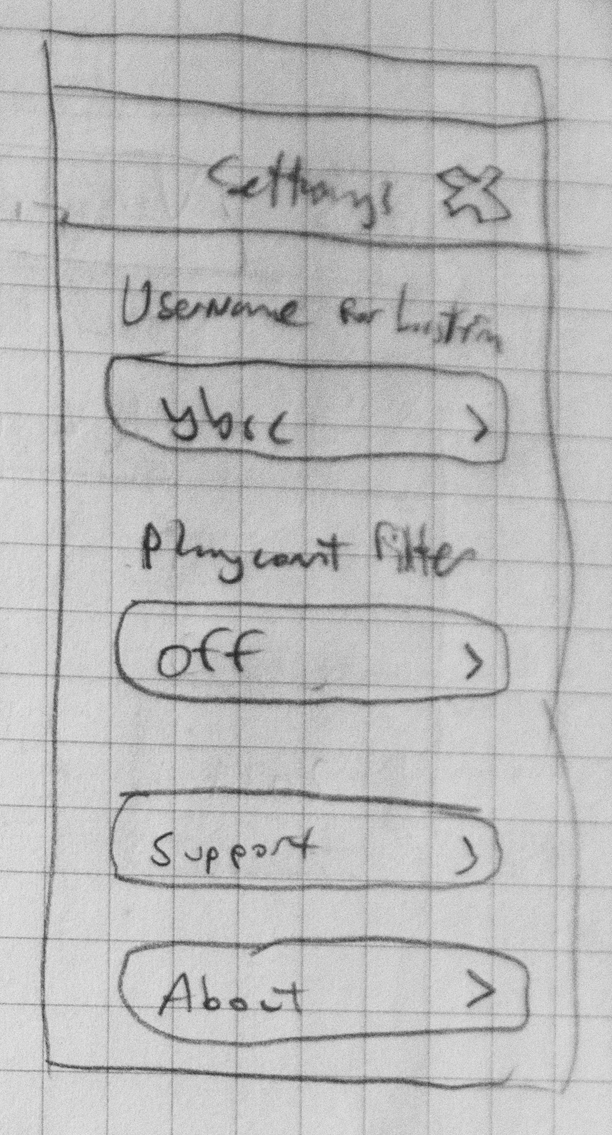 Settings
Username for Lastfm
Playcount Filter
Off >
Support >
About >